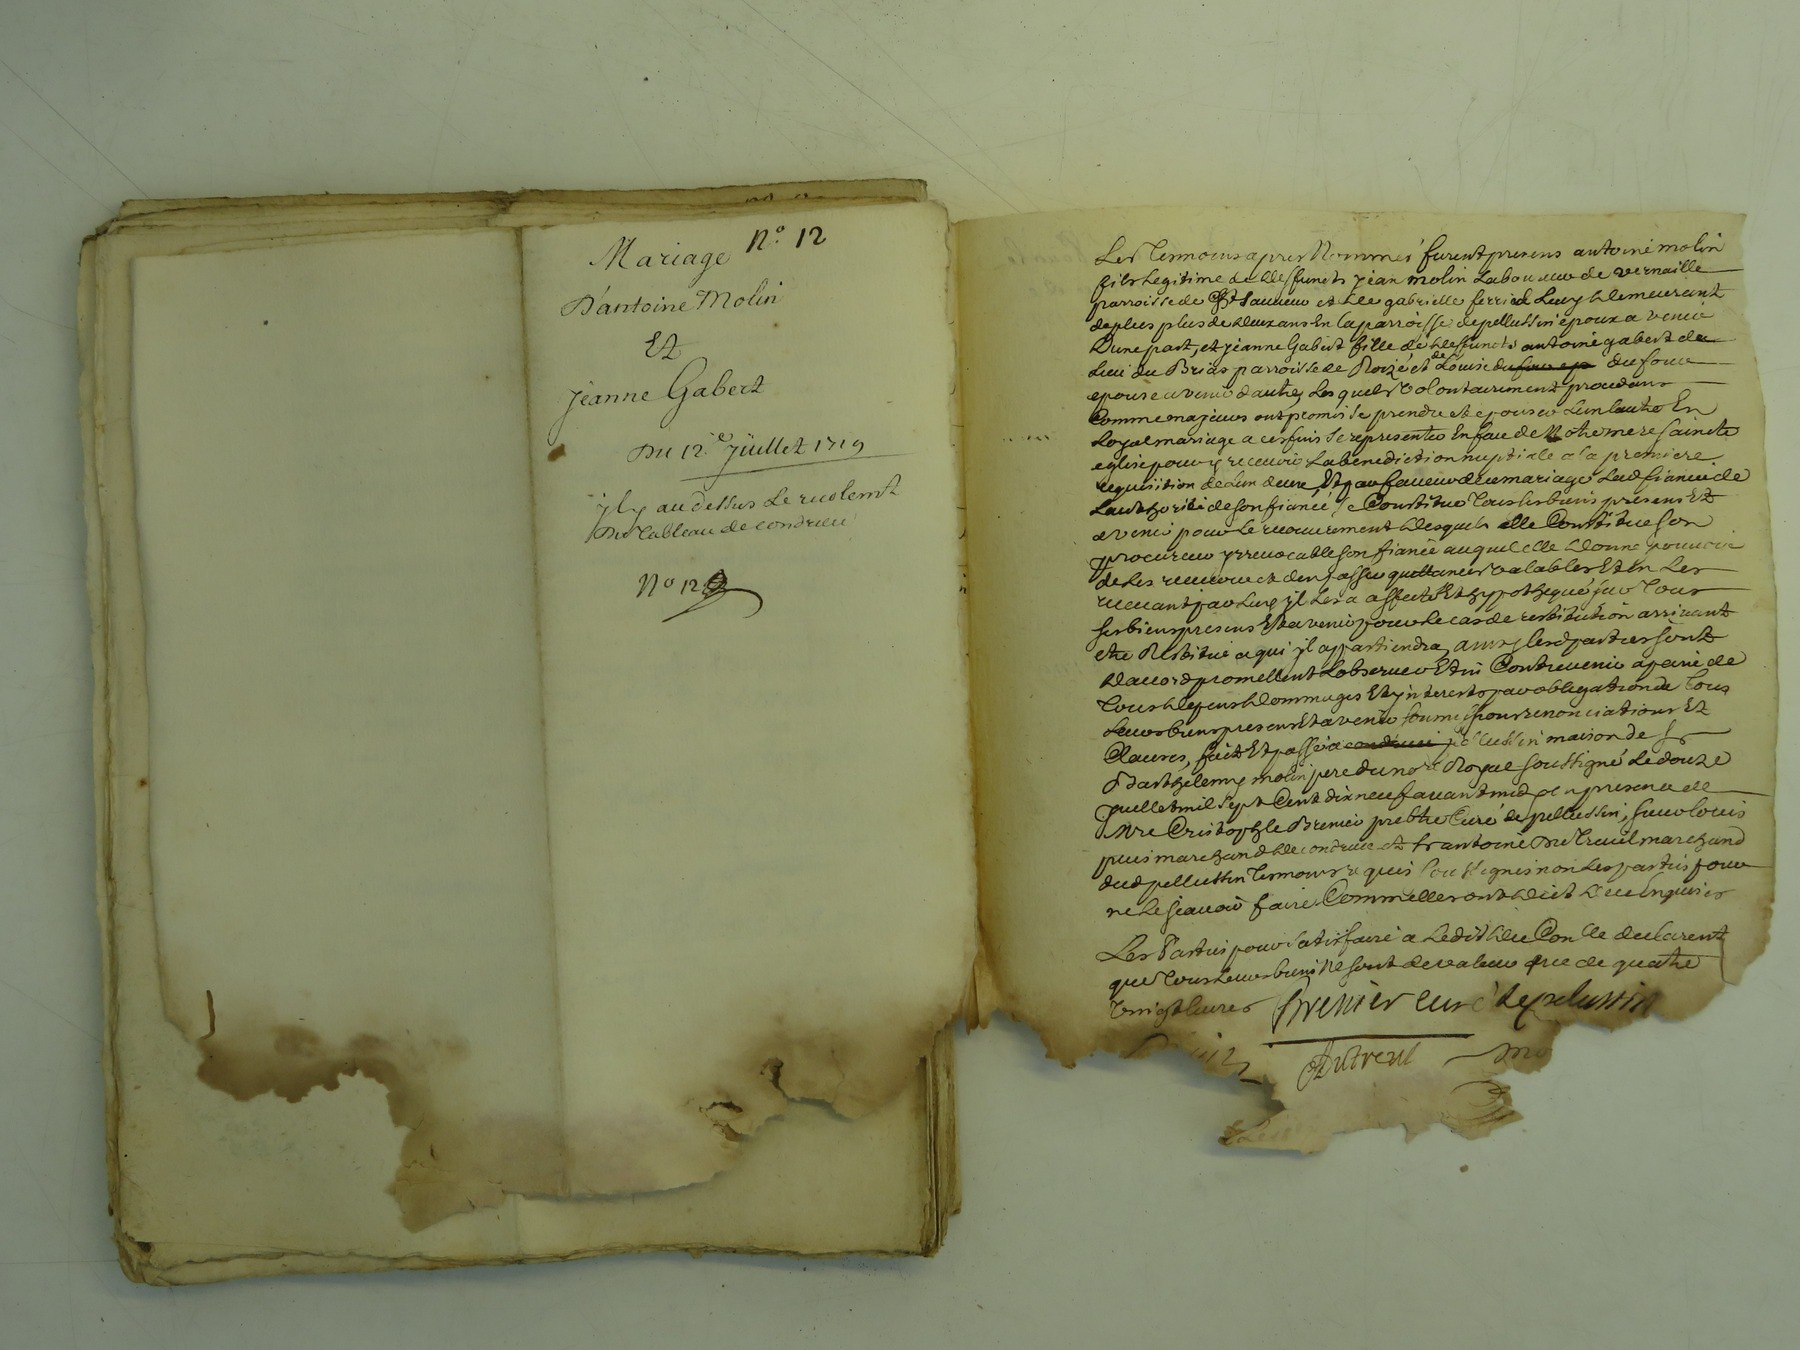 Mariage N.o 12
D'antoine Molin
Et
jeanne Gabert
Du 12.e juillet 1719
il y au dessus le
Du tableau de condrieu
No 12
Les Temoins apres Nommés furent presens antoine molin
fils legitime de deffuncts jean molin Laboureur de vernaille
parroisse de St Sauveur et de gabrielle ferriol Luy demeurant
depuis plus de deux ans En la parroisse de pellussin epoux a venir
Dune part, et jeanne Gabert fille de deffuncts antoine gabert du
Lieu du Brias parroisse de Roizé et de Louise du four
epouse a venir dautre, Lesquels volontairement procedans
Comme majeurs ont promis se prendre et epouser Lun lautre En
Loyal mariage a ces fins se representer En face de Notre mere saincte
eglise pour y recevoir La benediction nuptiale a la premiere
requisition de Lun deux, Et en faveur du mariage Lad fiancée de
Lauthorité de son fiancé se Constitue Tous ses biens presens Et
a venir pour le recouvrement desquels elle Constitue son
procureur yrrevocable son fiancé auquel elle donne pouvoir
de Les recevoir et den passer quittances valables Et en Les
recevant par Luy il Les a affecté Et hypothequé sur Tous
ses biens presens Et a venir pour le cas de restitution arrivant
etre Restitué a qui il appartiendra, ainsy lesd parties sont
daccord promettent Lobserver Et ni Contrevenir a peine de
Tous depens dommages Et ynterests par obligation de Tous
Leurs biens presens Et a venir soumissions renonciations Et
Clauses, fait Et passé a pellussin maison de sr
Barthelemy molin pere du no.re Royal soussigné Le douze
juillet mil Sept Cent dix neuf avant midy en presence de
Mre Cristophle Grenier prebtre Curé de pellussin, sieur Louis
marchand de condrieu et sr antoine Du Treuil marchand
dud pellussin Temoins requis soussignés non Les parties pour
ne le scavoir faire Comme elles ont dict de ce Enquises
Les Parties pour satisfaire a Ledit du Con.lle declarent
que Tous Leurs biens Ne sont de valeur que de quatre
vingt livres Grenier curé de pelussin
Dutreul